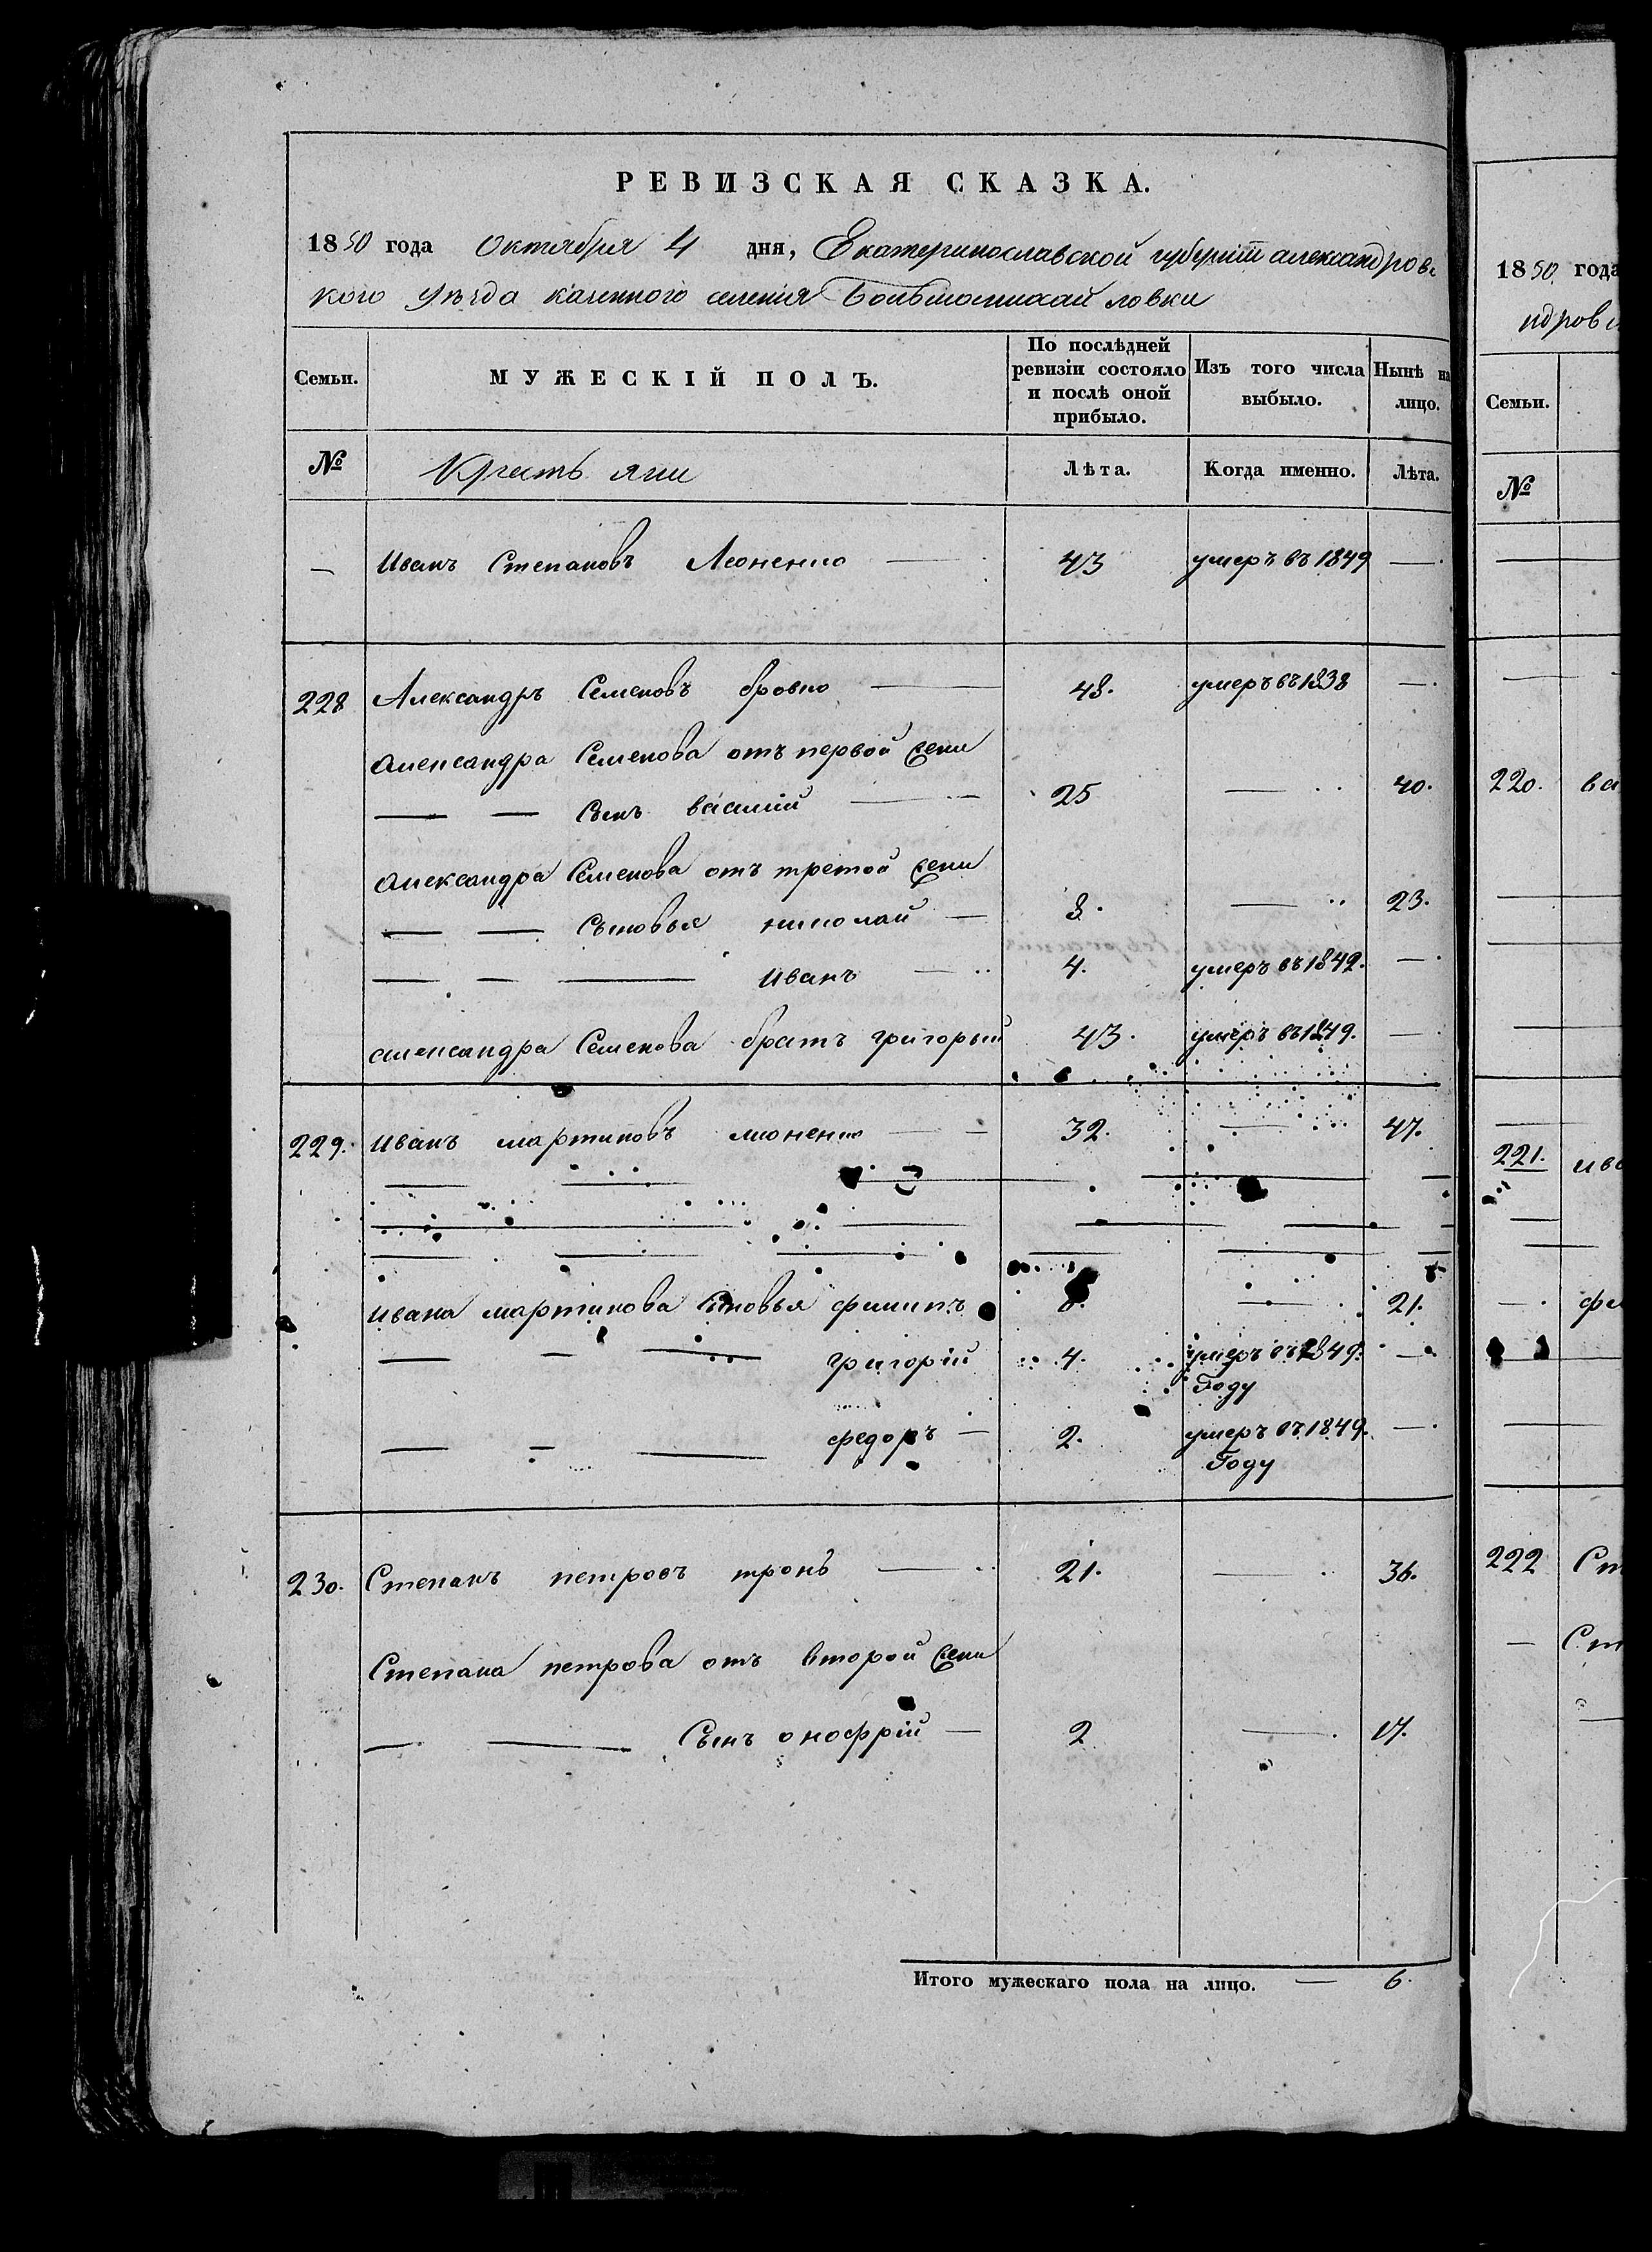 РЕВИЗСКАЯ СКАЗКА.
1850 года Октября 4 дня, Екатеринославской губернiи александровс
кого уѣзда казенного селенiя
Семьи. МУЖЕСКІЙ ПОЛЪ. По послѣдней ревизіи состояло и послѣ оной прибыло. Изъ того числа выбыло. Нынѣ на лицо.
№ Крестьяни Лѣта. Когда именно. Лѣта.
— Иванъ Степановъ Леоненко — 43 умеръ въ 1849 —
228 Александръ Семеновъ бровко — 48. умеръ въ 1838 —
александра Семенова отъ первой жени
— — Сынъ василiй — 25 — 40.
александра Семенова отъ третой жени
— — Сыновья николай — 8. — 23.
— — — Иванъ — 4. умеръ въ 1842. —
александра Семенова братъ григорьий 43. умеръ въ 1849. —
229. иванъ мартиновъ леоненко — 32. — 47.
ивана мартинова Сыновья филипъ 6. — 21.
— — — григорiй 4. умеръ въ 1849. —
Году
— — — федоръ — 2. умеръ въ 1849. —
Году
230. Степанъ петровъ тронь — 21. — 36.
Степана петрова отъ второй жени
— — Сынъ онофрiй — 2 — 17.
Итого мужескаго пола на лицо. — 6.
1850 года
ндровс
Семьи.
№
220. ва
221. ива
— фи
222 Ст
— Ст